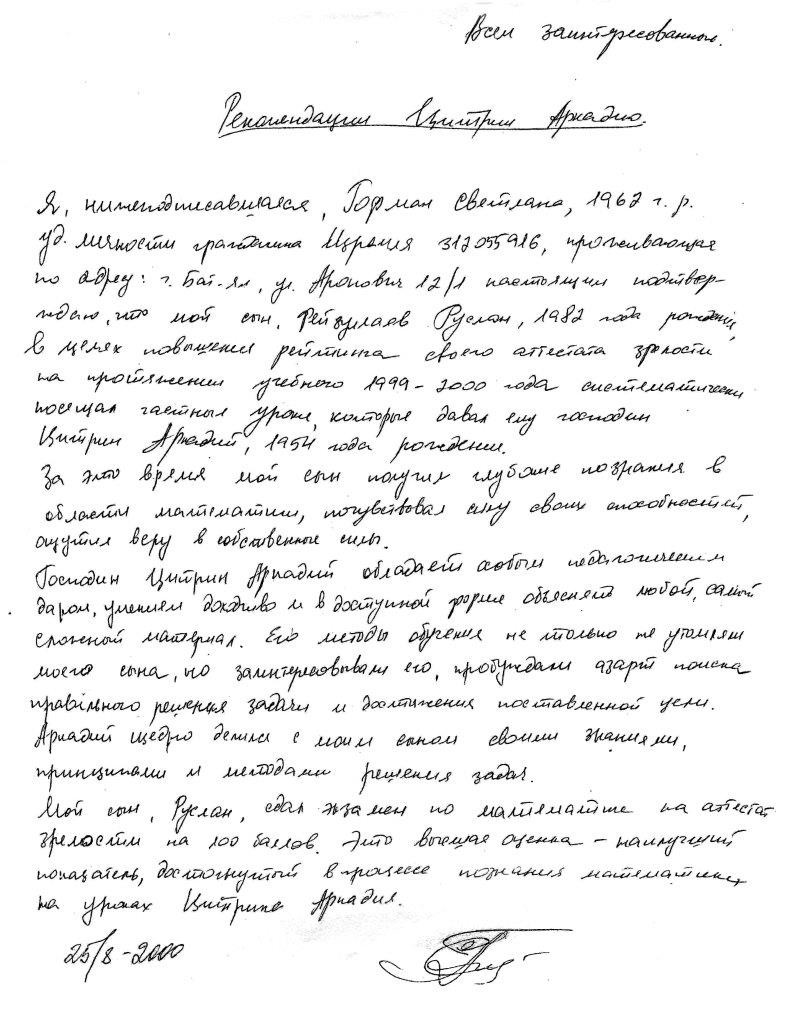 Всем заинтересованным.
Рекомендации Цитрин Аркадию.
Я, нижеподписавшаяся, Горман Светлана, 1962 г. р.
уд. личности гражданина Израиля 312055916, проживающая
по адресу: г. Бат-Ям, ул. Аронович 12/1 настоящим подтвер-
ждаю, что мой сын, Фейзулаев Руслан, 1982 года рождения,
в целях повышения рейтинга своего аттестата зрелости
на протяжении учебного 1999-2000 года систематически
посещал частные уроки, которые давал ему господин
Цитрин Аркадий, 1954 года рождения.
За это время мой сын получил глубокие познания в
области математики, почувствовал силу своих способностей,
ощутил веру в собственные силы.
Господин Цитрин Аркадий обладает особым педагогическим
даром, умением доходчиво и в доступной форме объяснять любой, самый
сложный материал. Его методы обучения не только не утомляли
моего сына, но заинтересовывали его, пробуждали азарт поиска
правильного решения задачи и достижения поставленной цели.
Аркадий щедро делился с моим сыном своими знаниями,
принципами и методами решения задач.
Мой сын, Руслан, сдал экзамен по математике на аттестат
зрелости на 100 баллов. Это высшая оценка - наилучший
показатель, достигнутый в процессе познания математики
на уроках Цитрина Аркадия.
25/8-2000